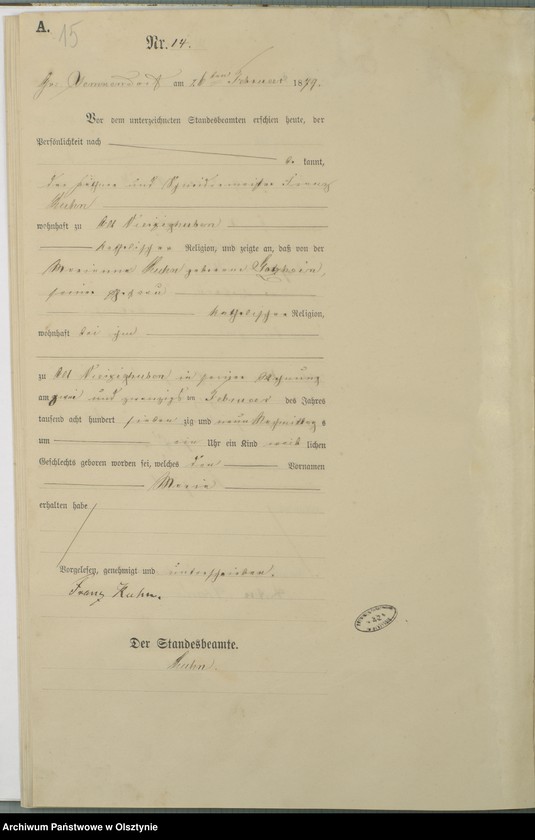 A.
15
Nr. 14.
am 26ten Februar 1879.
Vor dem unterzeichneten Standesbeamten erschien heute, der
Persönlichkeit nach
be kannt,
der und Schneidermeister Franz
Kuhn
wohnhaft zu Alt
katholischer Religion, und zeigte an, daß von der
Marianna Kuhn geborene
seiner Ehefrau
katholischer Religion,
wohnhaft bei ihm
zu Alt in seiner Wohnung
am zwei und zwanzigsten Februar des Jahres
tausend acht hundert sieben zig und neun Nachmittags
um ein Uhr ein Kind weib lichen
Geschlechts geboren worden sei, welches den Vornamen
Maria
erhalten habe
Vorgelesen, genehmigt und unterschrieben.
Franz Kuhn.
Der Standesbeamte.
Kuhn.
Archiwum Państwowe w Olsztynie